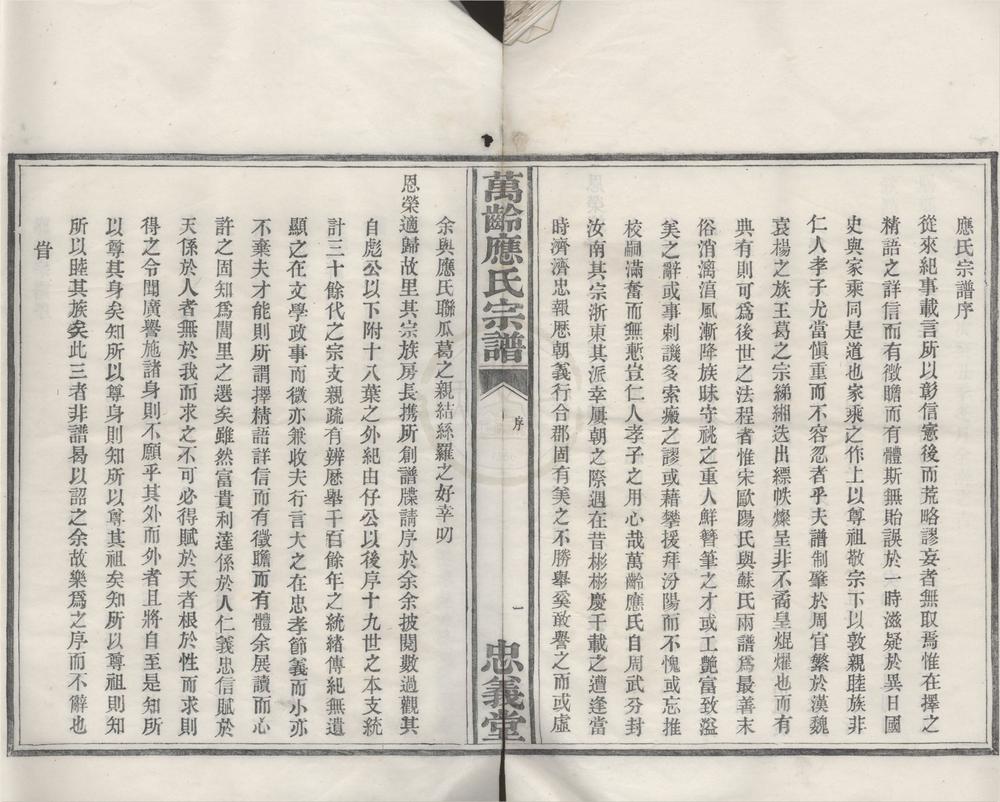 應氏宗譜序
從來紀事載言所以彰信憲後而荒略謬妄者無取焉惟在擇之
精語之詳信而有徵贍而有體斯無貽誤於一時滋疑於異日國
史與家乘同是道也家乘之作上以尊祖敬宗下以敦親睦族非
仁人孝子尤當愼重而不容忍者乎夫譜制肇於周官繁於漢魏
袁楊之族王葛之宗綈緗迭出縹帙燦呈非不矞皇焜燿也而有
典有則可爲後世之法程者惟宋歐陽氏與蘇氏兩譜爲最善末
俗淆漓滀風漸降族昧守祧之重人鮮簪筆之才或工艷富致溢
美之辭或事刺譏多索瘢之謬或藉攀援拜汾陽而不愧或忘推
校嗣滿奮而無慙豈仁人孝子之用心哉萬齡應氏自周武分封
汝南其宗浙東其派幸屢朝之際遇在昔彬彬慶千載之遭逢當
時濟濟忠報厯朝義行合郡固有美之不勝舉奚敢譽之而或虛
萬齡應氏宗譜
序
一
忠義堂
余與應氏聯瓜葛之親結絲羅之好幸叨
恩榮適歸故里其宗族房長携所創譜牒請序於余余披閱數過觀其
自彪公以下附十八葉之外紀由仔公以後序十九世之本支統
計三十餘代之宗支親疏有辨厯舉千百餘年之統緒傳紀無遺
顯之在文學政事而微亦兼收夫行言大之在忠孝節義而小亦
不棄夫才能則所謂擇精語詳信而有徵贍而有體余展讀而心
許之固知爲閭里之選矣雖然富貴利達係於人仁義忠信賦於
天係於人者無於我而求之不可必得賦於天者根於性而求則
得之令聞廣譽施諸身則不願乎其外而外者且將自至是知所
以尊其身矣知所以尊身則知所以尊其祖矣知所以尊祖則知
所以睦其族矣此三者非譜曷以詔之余故樂爲之序而不辭也
旹